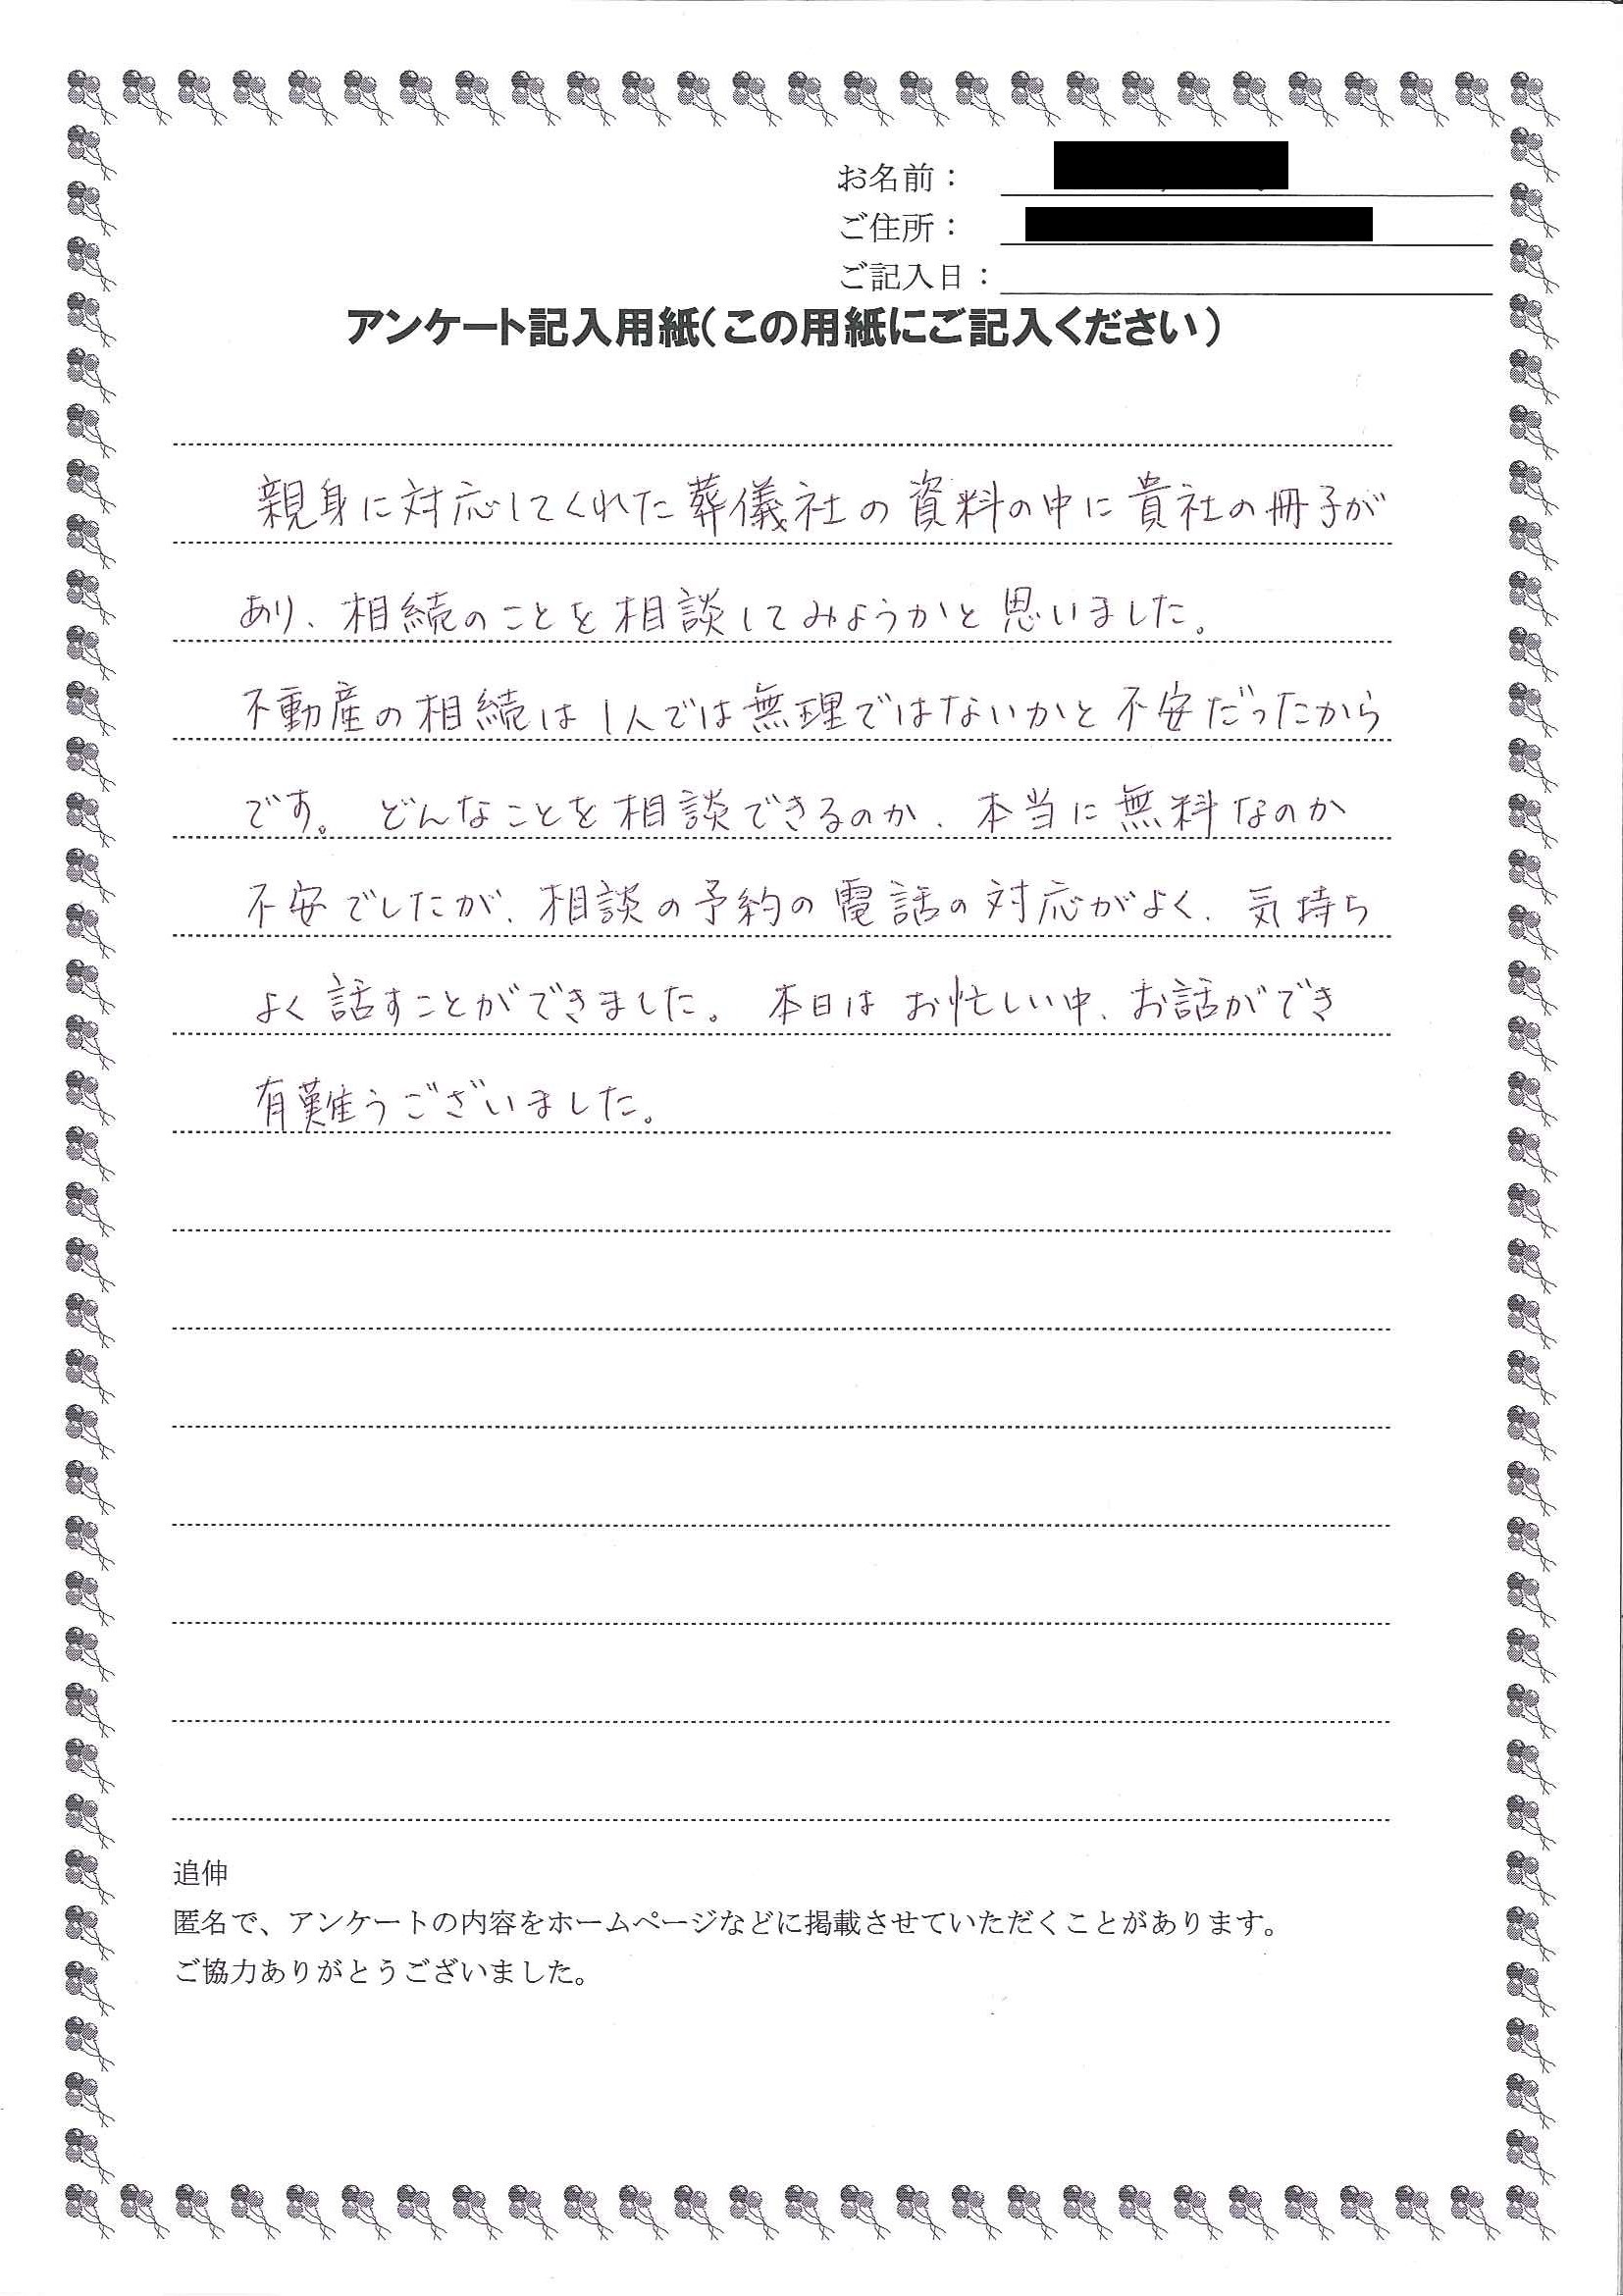 お名前：
ご住所：
ご記入日：
アンケート記入用紙（この用紙にご記入ください）
親身に対応してくれた葬儀社の資料の中に貴社の冊子が
あり、相続のことを相談してみようかと思いました。
不動産の相続は1人では無理ではないかと不安だったから
です。どんなことを相談できるのか、本当に無料なのか
不安でしたが、相談の予約の電話の対応がよく、気持ち
よく話すことができました。本日はお忙しい中、お話ができ
有難うございました。
追伸
匿名で、アンケートの内容をホームページなどに掲載させていただくことがあります。
ご協力ありがとうございました。